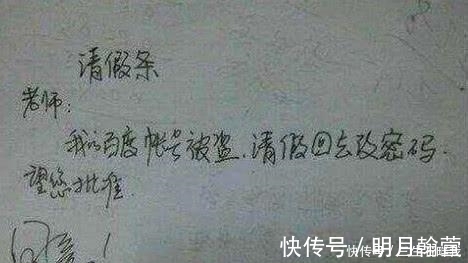 请假条
老师：
我的百度帐号被盗，请假回去改密码.
望您批准.
同意！
快传号／明月翰萱